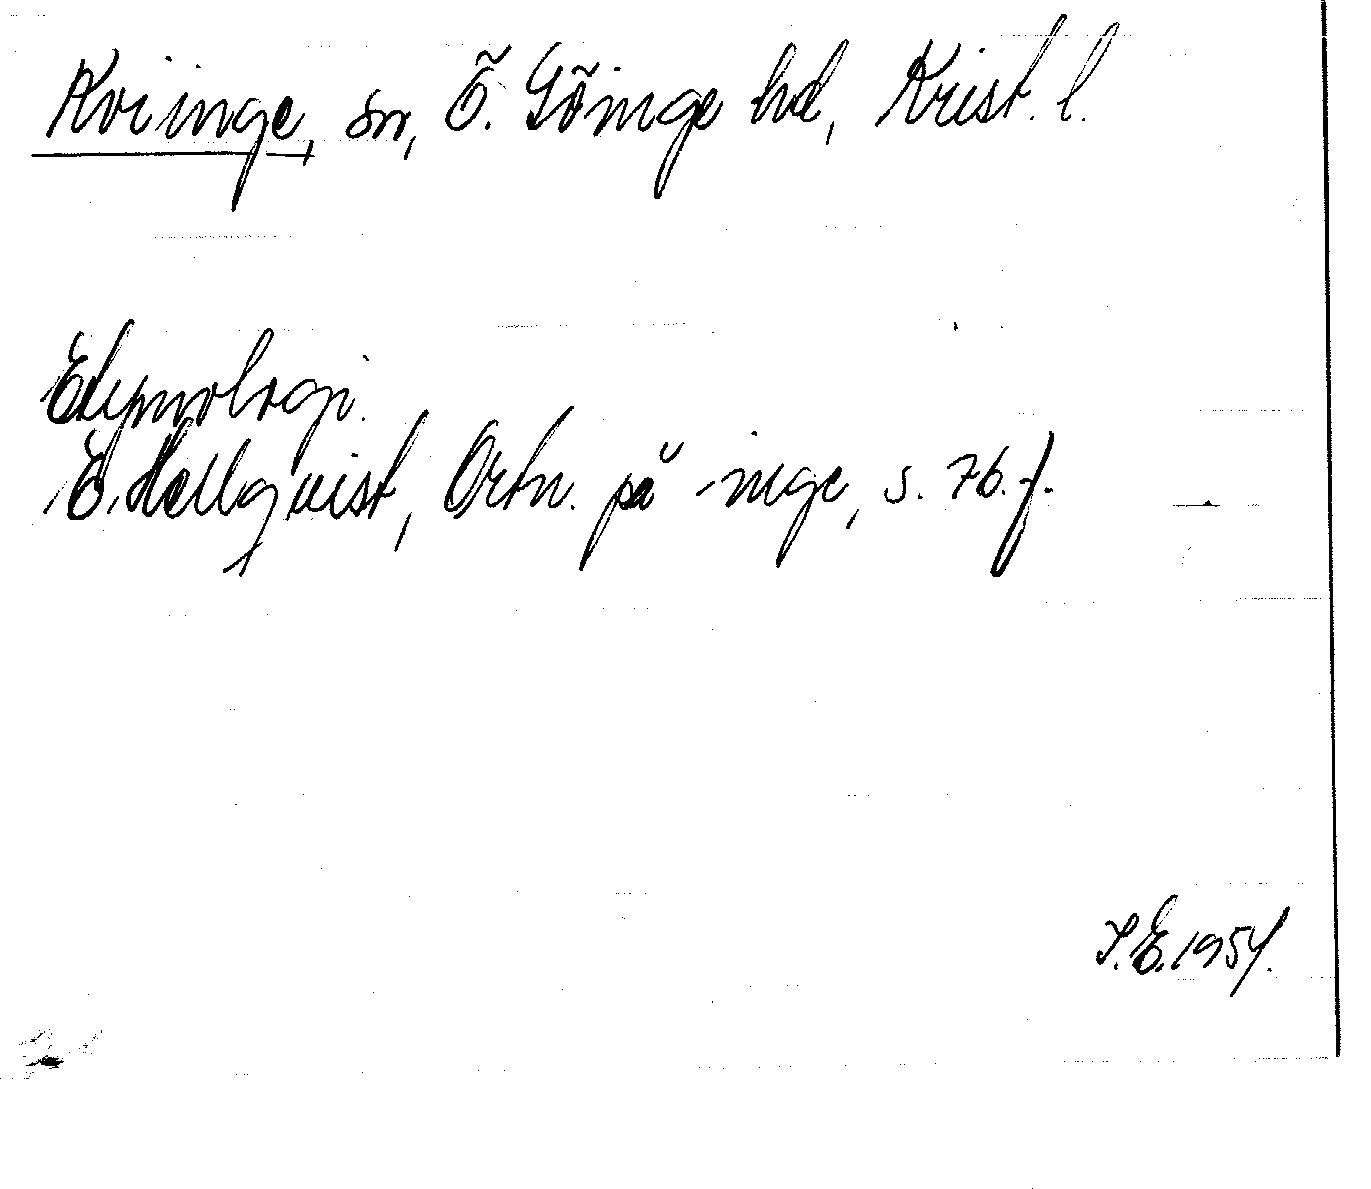 Kviinge, sn, Ö. Göinge hd, Krist. l.
Etymologi.
E. Hellquist, Ortn. på -inge, s. 76. f.
I. E. 1954.